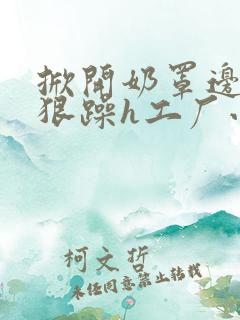 掀開奶罩邊
狠躁h工厂、
柯文哲
未任同意禁止转载